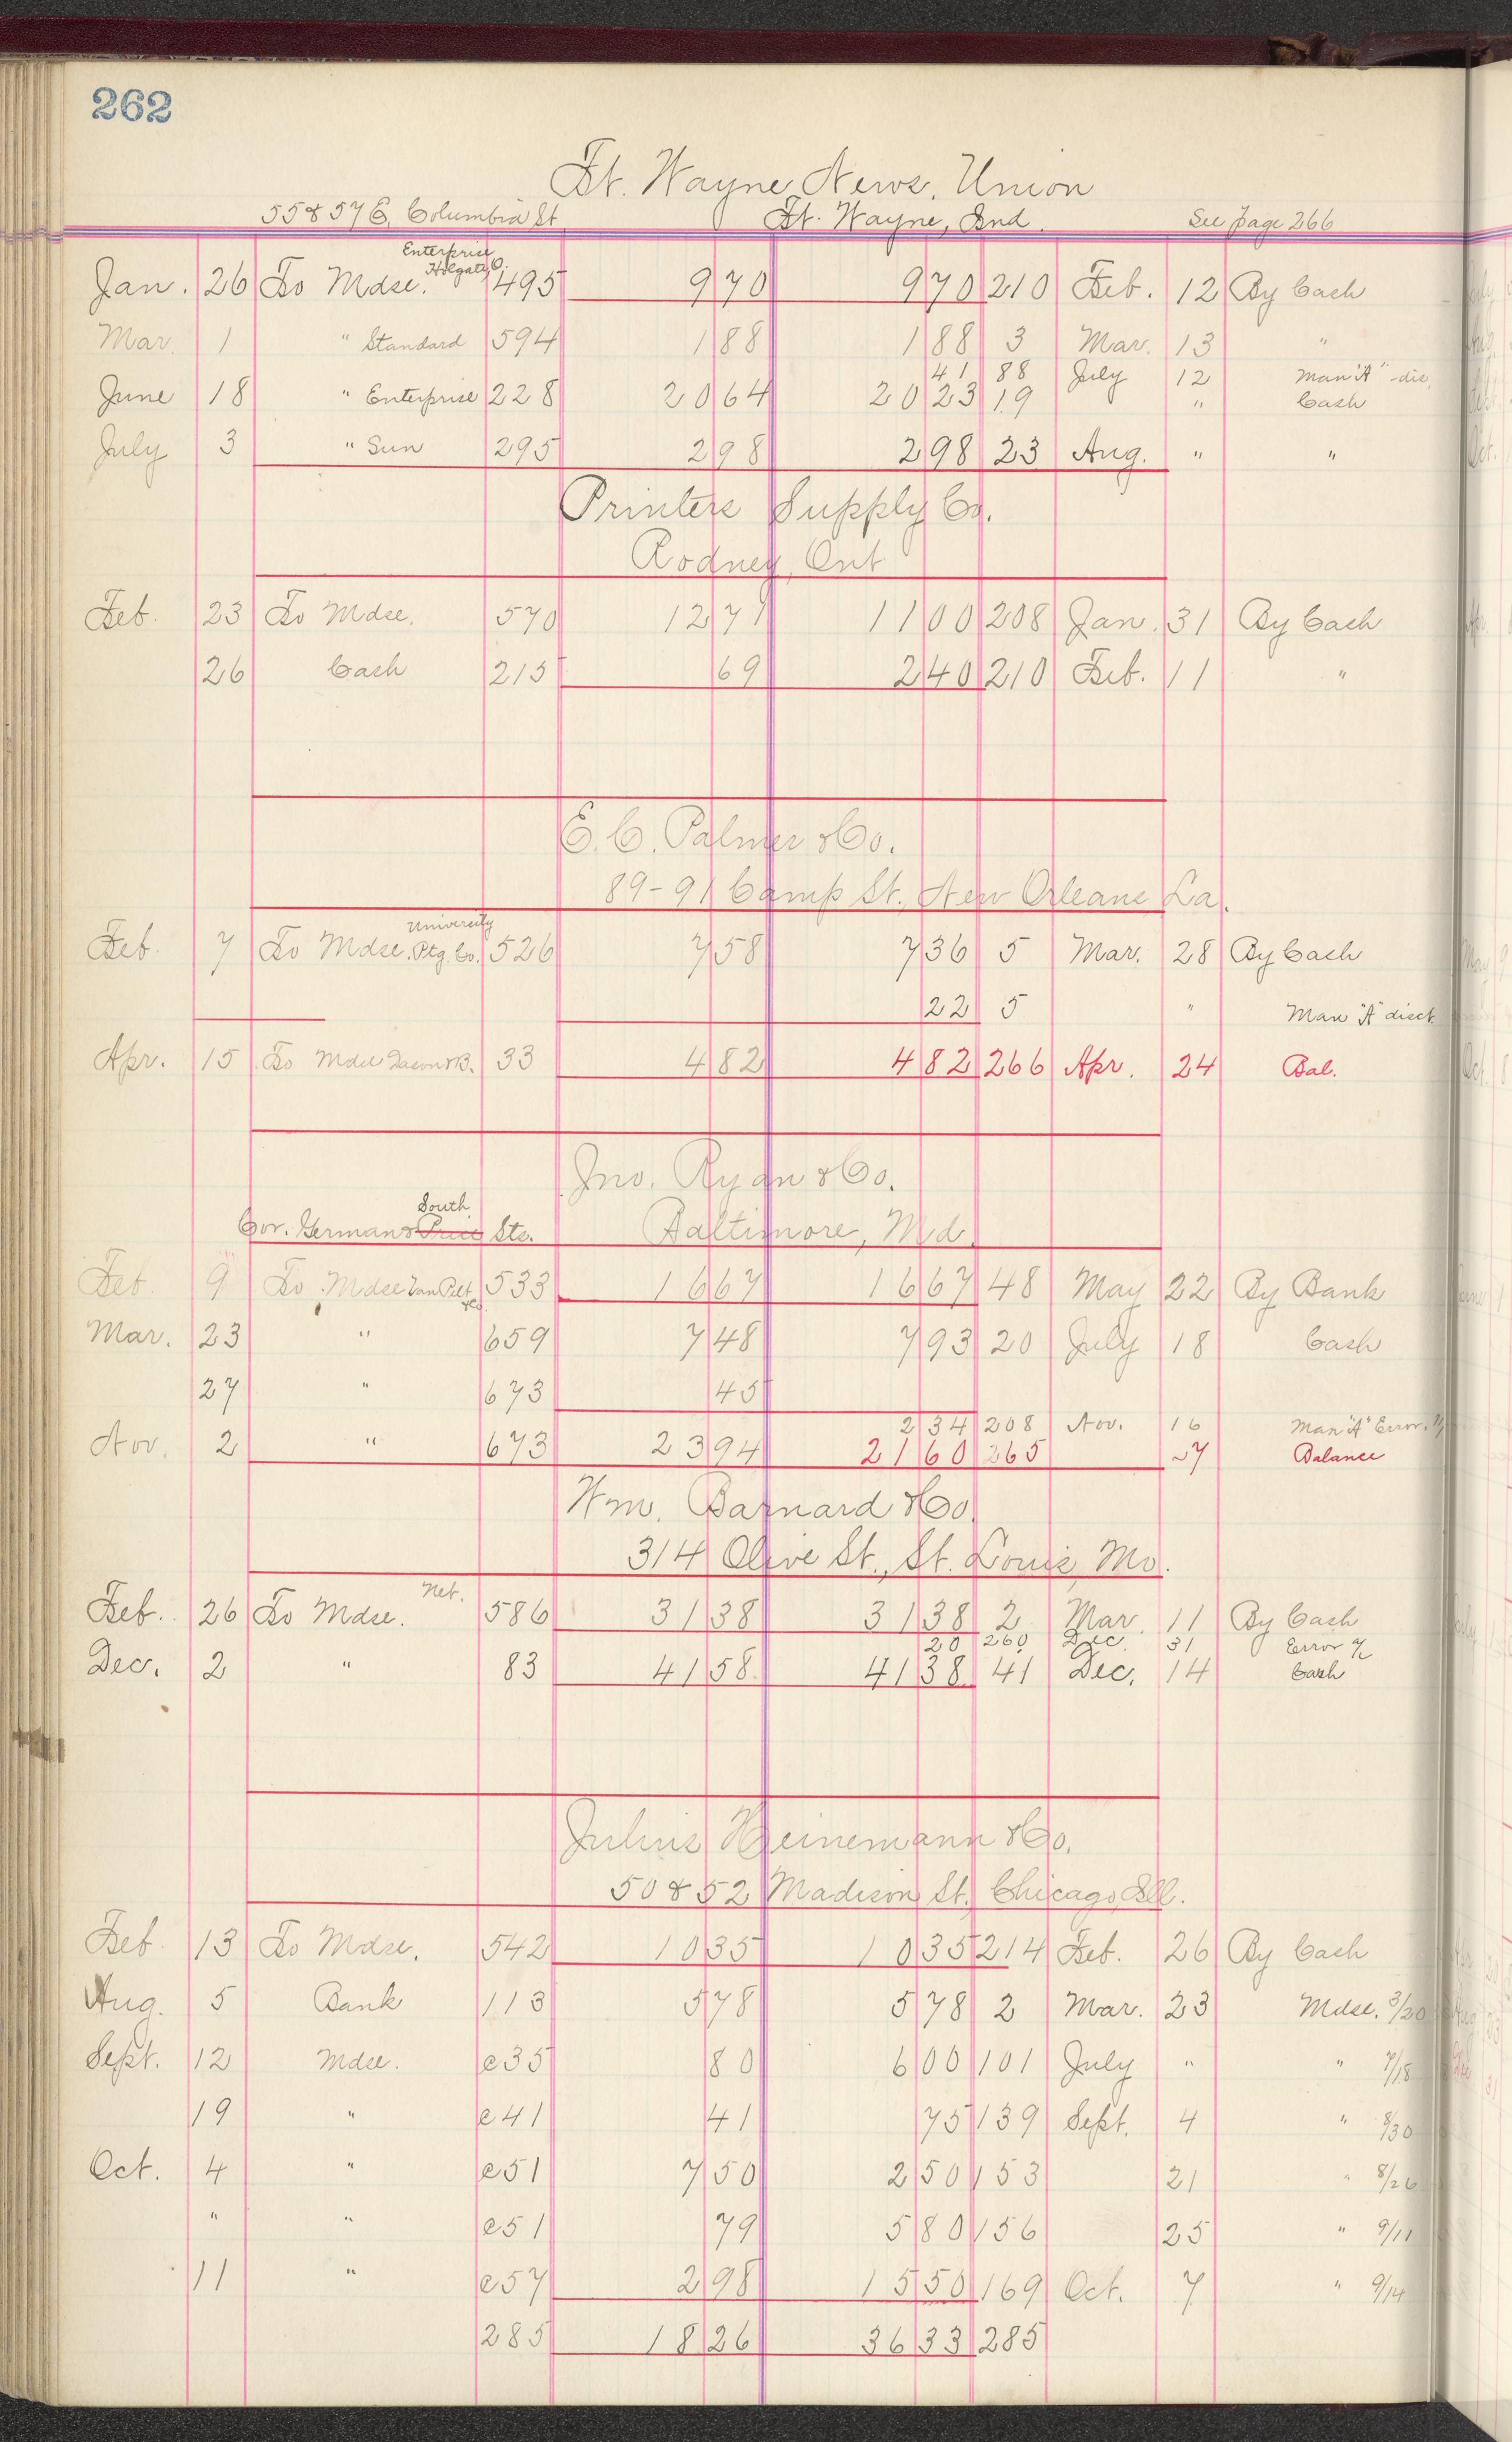 262
Ft. Wayne News, Union
55 & 57 E. Columbia St. Ft. Wayne, Ind. See page 266
Enterprise
Holgate, O.
Jan. 26 To Mdse. 495 9 70 9 70 210 Feb. 12 By Cash
Mar. 1 " Standard 594 1 88 1 88 3 Mar. 13 "
41 88 July 12 Man "A" - dis.
June 18 " Enterprise 228 20 64 20 23 19 " Cash
July 3 " Sun 295 2 98 2 98 23 Aug. " "
Printers Supply Co.
Rodney, Ont
Feb. 23 To Mdse. 570 12 71 11 00 208 Jan. 31 By Cash
26 Cash 215 69 2 40 210 Feb. 11 "
E. C. Palmer & Co.
89-91 Camp St., New Orleans La.
University
Feb. 7 To Mdse. Ptg. Co. 526 7 58 7 36 5 Mar. 28 By Cash
22 5 " Man "A" disct
Apr. 15 To Mdse 33 4 82 4 82 266 Apr. 24 Bal.
Jno. Ryan & Co.
South
Cor. German & Price Sts. Baltimore, Md.
Feb. 9 To Mdse Van Pelt & Co 533 16 67 16 67 48 May 22 By Bank
Mar. 23 " 659 7 48 7 93 20 July 18 Cash
27 " 673 45
2 34 208 Nov. 16 Man "A" Error
Nov. 2 " 673 23 94 21 60 265 27 Balance
Wm. Barnard & Co.
314 Olive St., St. Louis, Mo.
Net.
Feb. 26 To Mdse. 586 31 38 31 38 2 Mar. 11 By Cash
20 260 Dec. 31 Error %
Dec. 2 " 83 41 58 41 38 41 Dec. 14 Cash
Julius Heinemann & Co.
50 & 52 Madison St. Chicago, Ill.
Feb. 13 To Mdse. 542 10 35 10 35 214 Feb. 26 By Cash
Aug. 5 Bank 113 5 78 5 78 2 Mar. 23 Mdse. 3/20
Sept. 12 Mdse. e35 80 6 00 101 July " " 7/18
19 " e41 41 75 139 Sept. 4 " 8/30
Oct. 4 " e51 7 50 2 50 153 21 " 8/26
" " e51 79 5 80 156 25 " 9/11
11 " e57 2 98 15 50 169 Oct. 7 " 9/14
285 18 26 36 33 285